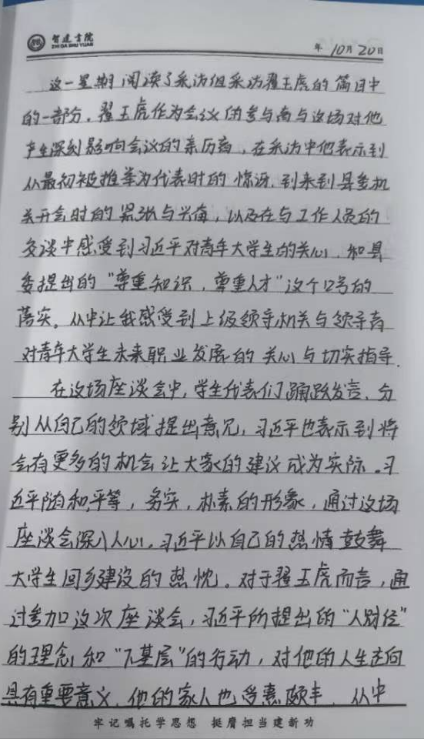 智建书院
ZHI JIAN SHU YUAN
年 10月 20日
这一星期阅读了采访组采访翟玉虎的篇目中
的一部分。翟玉虎作为会议的参与者与这场对他
产生深刻影响会议的亲历者,在采访中他表示到
从最初被推举为代表时的惊讶,到来到县委机
关开会时的紧张与兴奋,以及在与工作人员的
交谈中感受到习近平对青年大学生的关心,和县
委提出的“尊重知识,尊重人才”这个口号的
落实。从中让我感受到上级领导机关与领导者
对青年大学生未来职业发展的关心与切实指导.
在这场座谈会中,学生代表们踊跃发言,分
别从自己的领域提出意见,习近平也表示到将
会有更多的机会让大家的建议成为实际。习
近平随和平等,务实,朴素的形象,通过这场
座谈会深入人心。习近平以自己的热情鼓舞
大学生回乡建设的热忱。对于翟玉虎而言,通
过参加这次座谈会,习近平所提出的“人财经”
的理念和“下基层”的行动,对他的人生走向
具有重要意义,他的家人也受惠颇丰。从中
牢记嘱托学思想 挺膺担当建新功